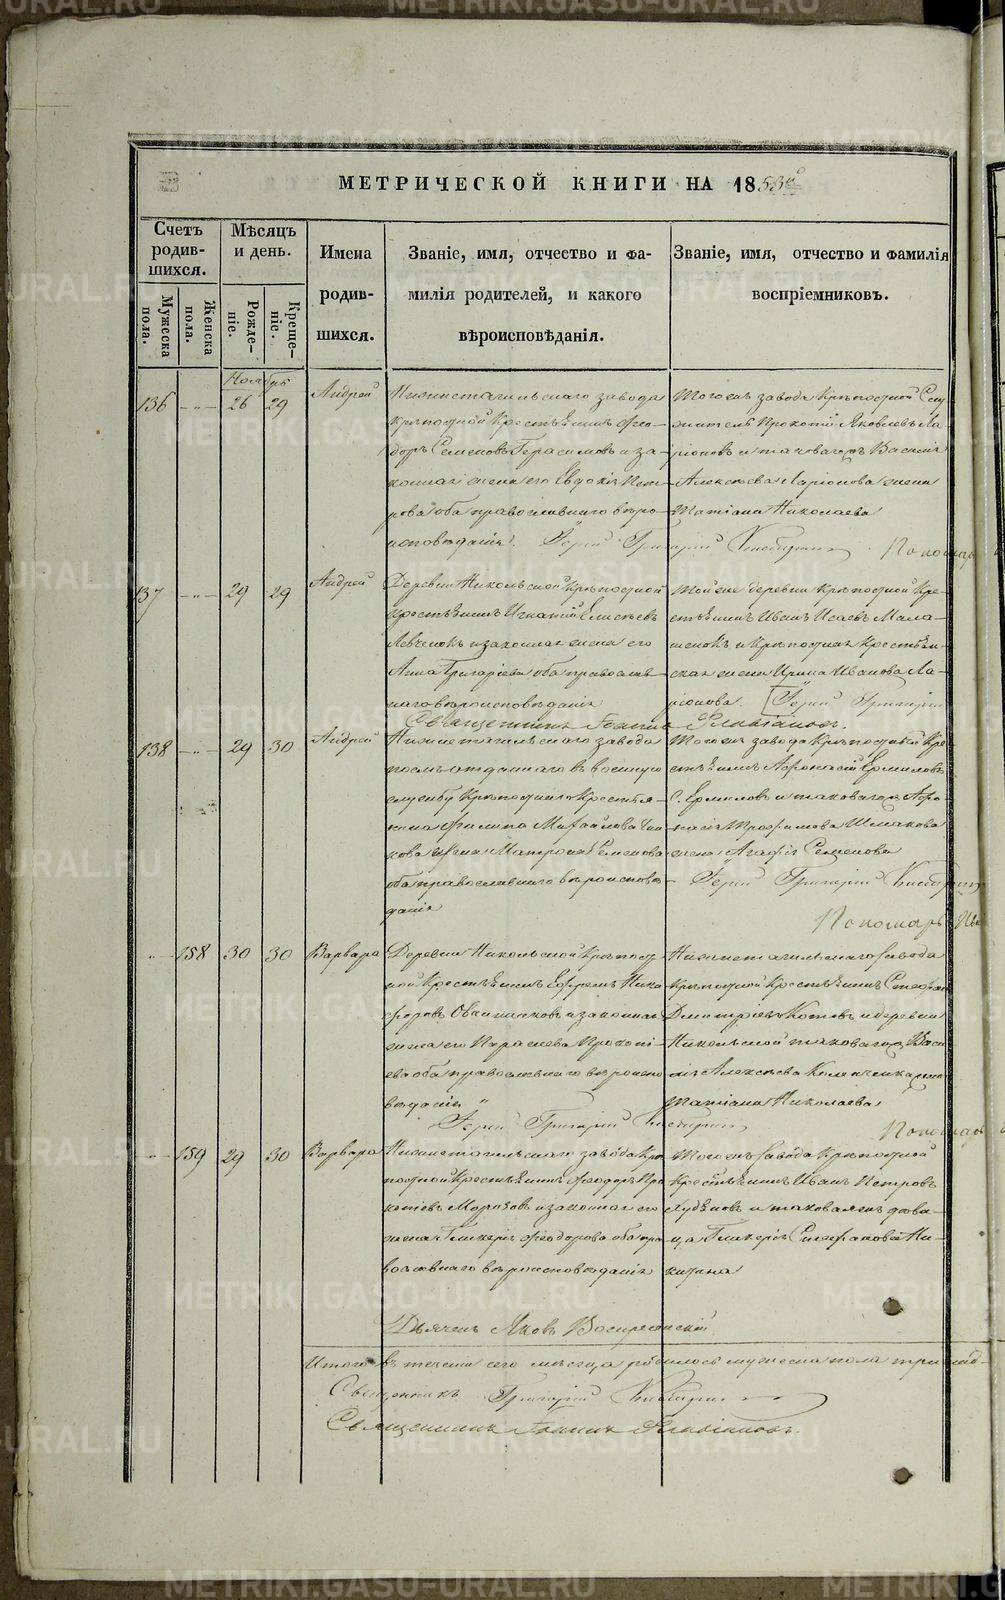 МЕТРИЧЕСКОЙ КНИГИ НА 1853й
Счетъ родив-шихся.
Мужеска пола.
Женска пола.
Мѣсяцъ и день.
Рожде-ніе.
Креще-ніе.
Имена
родив-
шихся.
Званіе, имя, отчество и фа-
милія родителей, и какого
вѣроисповѣданія.
Званіе, имя, отчество и фамилія
воспріемниковъ.
Ноябрь
136 -"- 26 29 Андрей
Нижнетагильскаго завода
крѣпостной Крестьянинъ Ѳео-
доръ Семеновъ Герасимовъ и за-
конная жена его Евдокія Пет-
рова оба православнаго вѣро-
исповѣданія.
Тогожъ завода Крѣпостной Слу-
житель Прокопій Яковлевъ Ла-
ріоновъ и таковагожъ Василія
Алексѣева Ларіонова жена
Татіана Николаева
Іерей Григорій
Пономарь
137 -"- 29 29 Андрей
Деревни Никольской Крѣпостной
Крестьянинъ Игнатій Елисѣевъ
Левченокъ и законная жена его
Анна Григоріева оба православ-
наго вѣроисповѣданія
Тойже деревни Крѣпостной Кре-
стьянинъ Иванъ Исаевъ Мала-
шенокъ и Крѣпостная Крестьян-
ская жена Ирина Иванова Ла-
ріонова.
Іерей Григорій
Священникъ Іоаннъ Флавіановъ.
138 -"- 29 30 Андрей
Нижнетагильскаго завода
послѣ отданнаго въ военную
службу Крѣпостнаго Крестья-
нина Филипа Михайлова
жена Матрона Семенова
оба православнаго вѣроисповѣ-
данія
Тогожъ завода Крѣпостной Кре-
стьянинъ Афонасій Ермиловъ
Ермиловъ и таковагожъ Афо-
насія Трофимова Шмакова
жена Агафія Семенова
Іерей Григорій
Пономарь
-"- 158 30 30 Варвара
Деревни Никольской Крѣпост-
ной Крестьянинъ Ефремъ Ники-
форовъ и законная
жена его Параскева Прокопі-
ева оба православнаго вѣроиспо-
вѣданія
Нижнетагильскаго Завода
крѣпостной Крестьянинъ Стефанъ
Дмитріевъ Котовъ и деревни
Никольской таковагожъ Васи-
лія Алексѣева жена
Татіана Николаева
Іерей Григорій
Пономарь
-"- 159 29 30 Варвара
Нижнетагильскаго завода Крѣ-
постной Крестьянинъ Ѳеодоръ Про-
копіевъ Морозовъ и законная его
жена Гликерія Ѳеодорова оба пра-
вославнаго вѣроисповѣданія
Тогожъ Завода Крѣпостной
Крестьянинъ Иванъ Петровъ
и таковагожъ дѣви-
ца Гликерія Стефанова Ни-
китина
Дьячекъ Яковъ Воскресенскій
Итого въ теченіи сего мѣсяца родилось мужеска пола
Священникъ Григорій
Священникъ Іоаннъ Флавіановъ.
METRIKI.GASO-URAL.RU